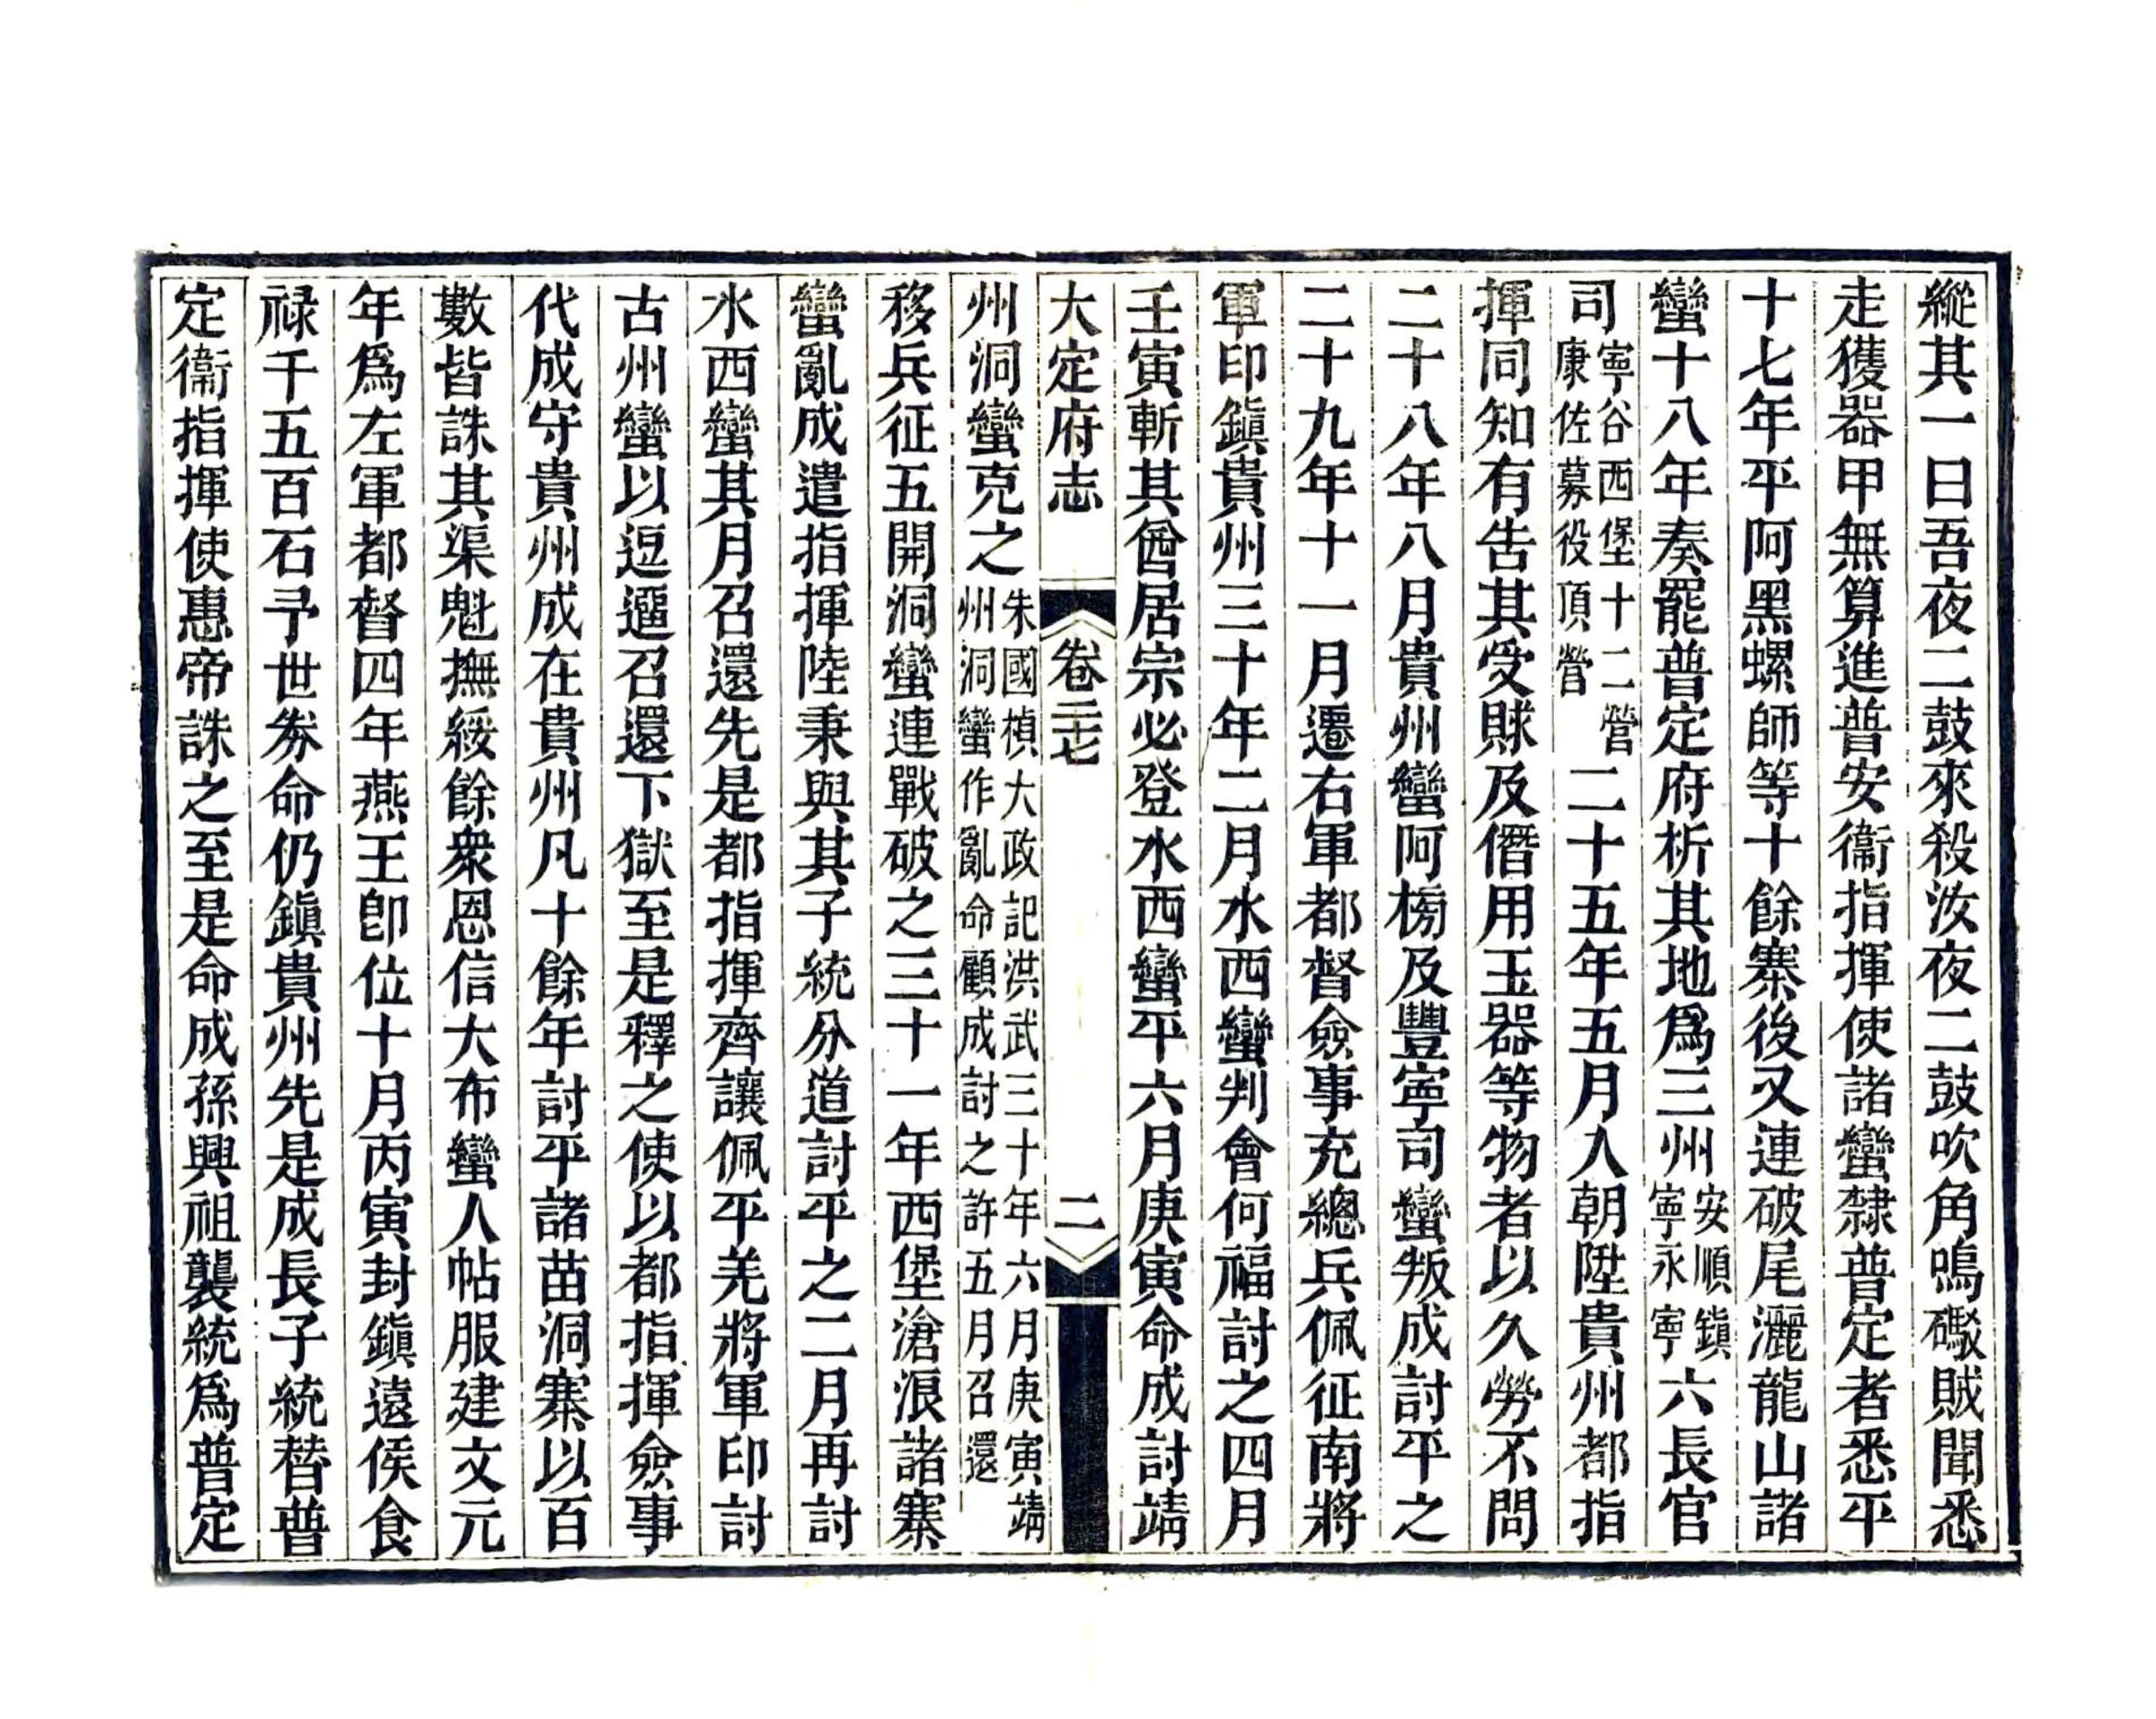 縱其一曰吾夜二鼓來殺汝夜二鼓吹角鳴礮賊聞悉
走獲器甲無算進普安衞指揮使諸蠻隸普定者悉平
十七年平阿黑螺師等十餘寨後又連破尾灑龍山諸
蠻十八年奏罷普定府析其地爲三州安順鎮寧永寧六長官
司寧谷西堡十二營康佐募役頂營二十五年五月入朝陞貴州都指
揮同知有告其受賕及僭用玉器等物者以久勞不問
二十八年八月貴州蠻阿榜及豐寧司蠻叛成討平之
二十九年十一月遷右軍都督僉事充總兵佩征南將
軍印鎮貴州三十年二月水西蠻判會何福討之四月
壬寅斬其酋居宗必登水西蠻平六月庚寅命成討靖
大定府志
卷二十七
二
州洞蠻克之朱國楨大政記洪武三十年六月庚寅靖州洞蠻作亂命顧成討之許五月召還
移兵征五開洞蠻連戰破之三十一年西堡滄浪諸寨
蠻亂成遣指揮陸秉與其子統分道討平之二月再討
水西蠻其月召還先是都指揮齊讓佩平羌將軍印討
古州蠻以逗遛召還下獄至是釋之使以都指揮僉事
代成守貴州成在貴州凡十餘年討平諸苗洞寨以百
數皆誅其渠魁撫綏餘衆恩信大布蠻人帖服建文元
年爲左軍都督四年燕王卽位十月丙寅封鎮遠侯食
祿千五百石予世劵命仍鎮貴州先是成長子統替普
定衞指揮使惠帝誅之至是命成孫興祖襲統爲普定